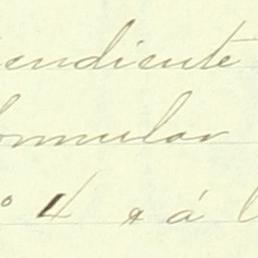 endiente
ormular
º 4 a á l